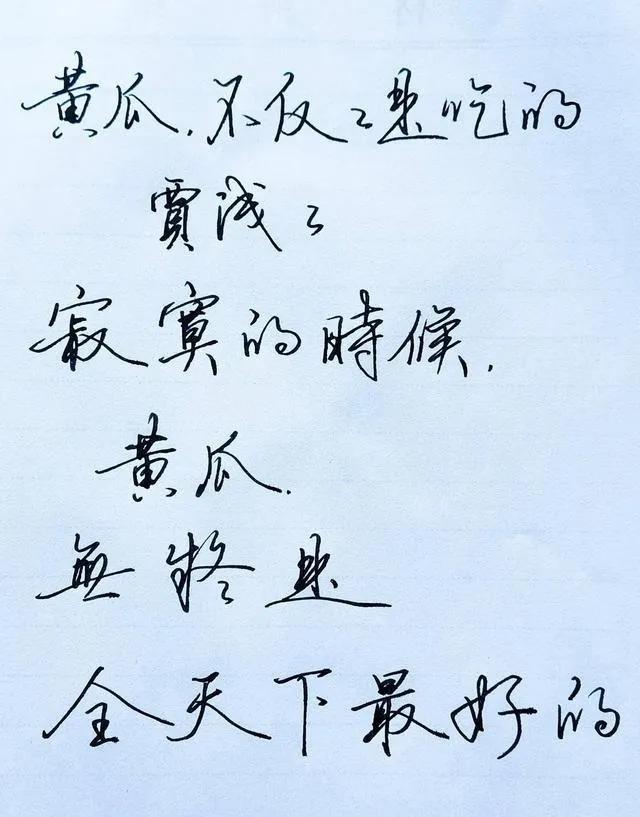 黄瓜,不仅々是吃的
賈浅々
寂寞的時候,
黄瓜.
無疑是
全天下最好的